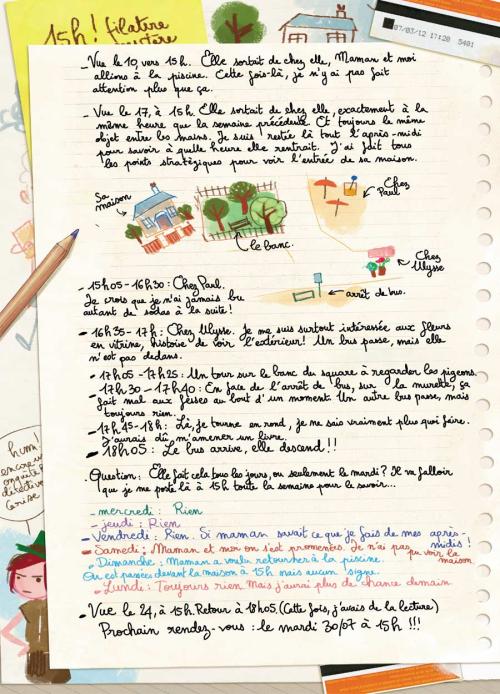 15h! filature
07/03/12 17:20 5401
- Vue le 10, vers 15h. Elle sortait de chez elle, Maman et moi
allions à la piscine. Cette fois-là, je n'y ai pas fait
attention plus que ça.
- Vue le 17, à 15h. Elle sortait de chez elle, exactement à la
même heure que la semaine précédente. Et toujours le même
objet entre les mains. Je suis restée là tout l'après-midi
pour savoir à quelle heure elle rentrait. J'ai fait tous
les points stratégiques pour voir l'entrée de sa maison.
Sa maison
le banc.
Chez Paul
Chez Ulysse
arrêt de bus.
- 15h05 - 16h30 : Chez Paul.
Je crois que je n'ai jamais bu
autant de sodas à la suite !
- 16h35 - 17h : Chez Ulysse. Je me suis surtout intéressée aux fleurs
en vitrine, histoire de voir l'extérieur ! Un bus passe, mais elle
n'est pas dedans.
- 17h05 - 17h25 : Un tour sur le banc du square à regarder les pigeons.
- 17h30 - 17h40 : En face de l'arrêt de bus, sur la murette, ça
fait mal aux fesses au bout d'un moment. Un autre bus passe, mais
toujours rien.
- 17h45 - 18h : Là, je tourne en rond, je ne sais vraiment plus quoi faire.
J'aurais dû m'amener un livre.
- 18h05 : Le bus arrive, elle descend !!
. Question : Elle fait cela tous les jours, ou seulement le mardi ? Il va falloir
que je me poste là à 15h toute la semaine pour le savoir...
- mercredi : Rien
- jeudi : Rien
- Vendredi : Rien. Si maman savait ce que je fais de mes après-midis !
- Samedi : Maman et moi on s'est promenées. Je n'ai pas pu voir la maison
. Dimanche : Maman a voulu retourner à la piscine.
On est passées devant la maison à 15h mais aucun signe.
. Lundi : Toujours rien Mais j'aurai plus de chance demain
- Vue le 24, à 15h. Retour à 18h05. (Cette fois, j'avais de la lecture)
Prochain rendez-vous : le mardi 30/07 à 15h !!!
hum!
détective
Cerise